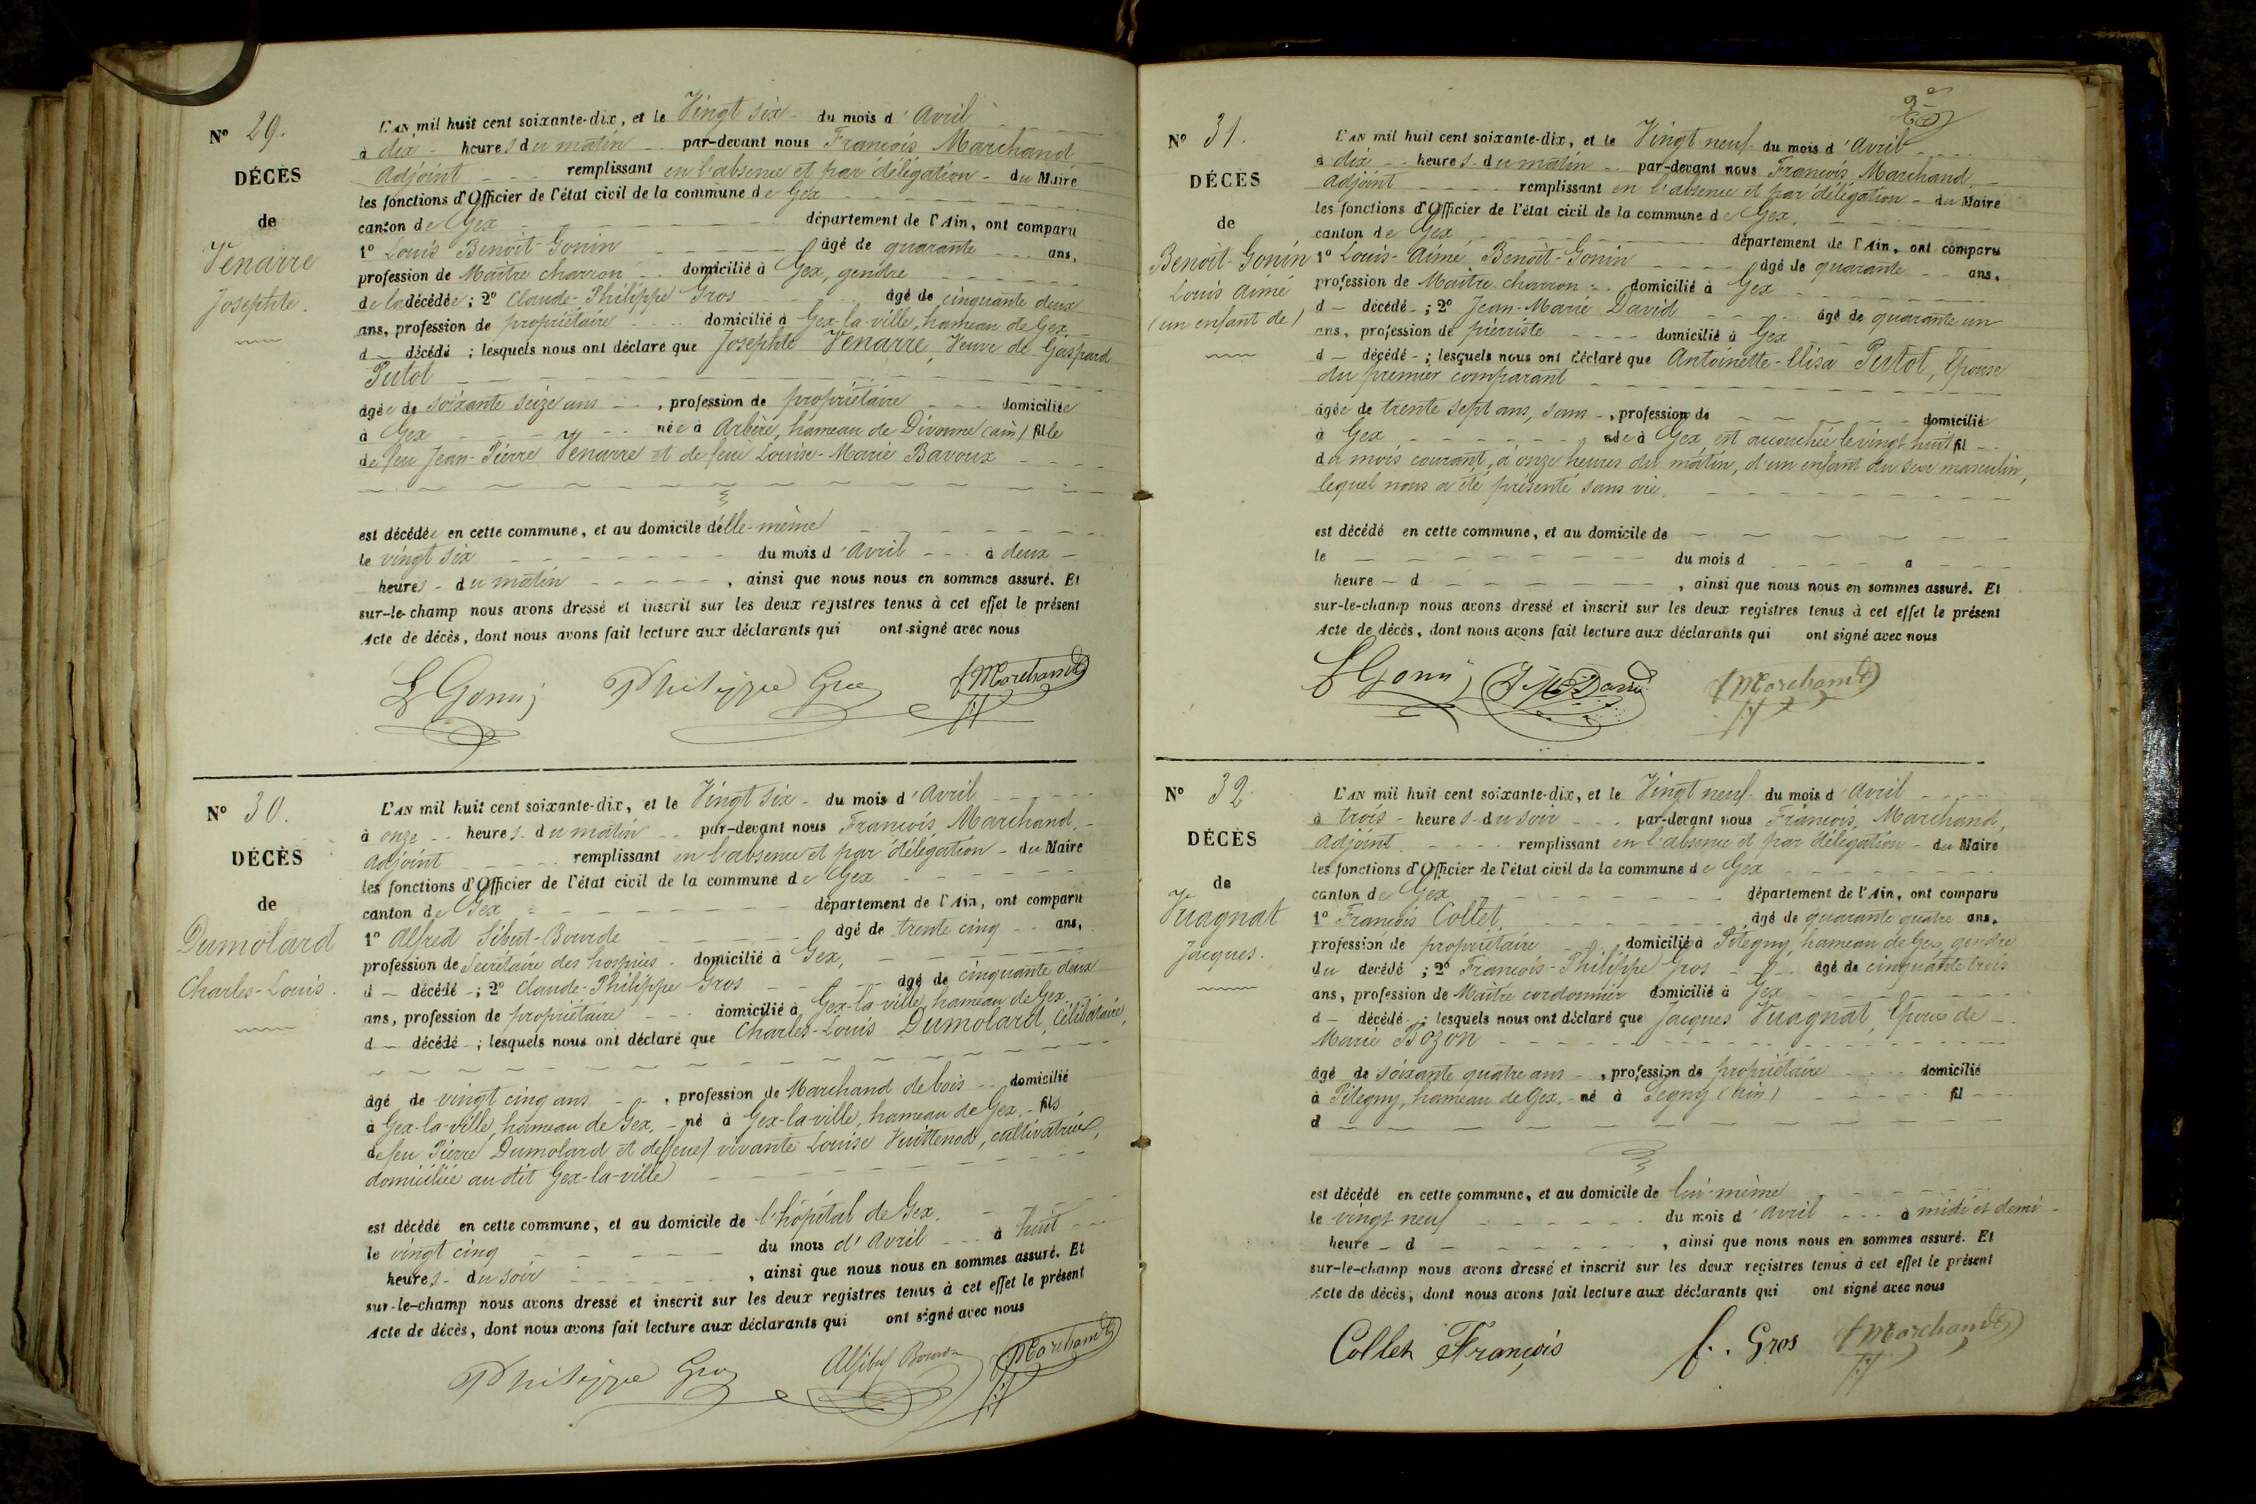 N° 29.
DÉCÈS
de
Venarre
Josephte.
L'AN mil huit cent soixante-dix, et le Vingt six du mois d'Avril
à dix heures du matin par-devant nous François Marchand
Adjoint remplissant en l'absence et par délégation du Maire
les fonctions d'Officier de l'état civil de la commune de Gex
canton de Gex département de l'Ain, ont comparu
1° Louis Benoit-Gonin âgé de quarante ans,
profession de Maître charron domicilié à Gex, gendre
de la décédée ; 2° Claude-Philippe Gros âgé de cinquante deux
ans, profession de propriétaire domicilié à Gex-la-ville, hameau de Gex
d décédé ; lesquels nous ont déclaré que Josephte Venarre, Veuve de Gaspard
Pertot
âgée de soixante seize ans, profession de propriétaire domiciliée
à Gex née à Arbère, hameau de Divonne (ain) fille
de feu Jean-Pierre Venarre et de feue Louise-Marie Bavoux
est décédée en cette commune, et au domicile d'elle-même
le vingt six du mois d'Avril à deux
heures du matin, ainsi que nous nous en sommes assuré. Et
sur-le-champ nous avons dressé et inscrit sur les deux registres tenus à cet effet le présent
Acte de décès, dont nous avons fait lecture aux déclarants qui ont signé avec nous
L Gonin Philippe Gros f Marchand
N° 30.
DÉCÈS
de
Dumolard
Charles-Louis.
L'AN mil huit cent soixante-dix, et le Vingt six du mois d'Avril
à onze heures du matin par-devant nous François Marchand,
Adjoint remplissant en l'absence et par délégation du Maire
les fonctions d'Officier de l'état civil de la commune de Gex
canton de Gex département de l'Ain, ont comparu
1° Alfred Sibert-Bourde âgé de trente cinq ans,
profession de Secrétaire des hospices domicilié à Gex,
d décédé ; 2° Claude-Philippe Gros âgé de cinquante deux
ans, profession de propriétaire domicilié à Gex-la-ville, hameau de Gex
d décédé ; lesquels nous ont déclaré que Charles-Louis Dumolard, Célibataire,
âgé de vingt cinq ans, profession de Marchand de bois domicilié
à Gex-la-ville, hameau de Gex, né à Gex-la-ville, hameau de Gex, fils
de feu Pierre Dumolard et de (feue) vivante Louise Vuittenod, cultivatrice,
domiciliée au dit Gex-la-ville
est décédé en cette commune, et au domicile de l'hôpital de Gex.
le vingt cinq du mois d'Avril à huit
heures du soir, ainsi que nous nous en sommes assuré. Et
sur-le-champ nous avons dressé et inscrit sur les deux registres tenus à cet effet le présent
Acte de décès, dont nous avons fait lecture aux déclarants qui ont signé avec nous
Philippe Gros f Marchand
N° 31.
DÉCÈS
de
Benoit-Gonin
Louis Aimé
(un enfant de)
L'AN mil huit cent soixante-dix, et le Vingt neuf du mois d'Avril
à dix heures du matin par-devant nous François Marchand,
Adjoint remplissant en l'absence et par délégation du Maire
les fonctions d'Officier de l'état civil de la commune de Gex,
canton de Gex département de l'Ain, ont comparu
1° Louis-Aimé Benoit-Gonin âgé de quarante ans,
profession de Maître charron domicilié à Gex
d décédé ; 2° Jean-Marie David âgé de quarante un
ans, profession de pierriste domicilié à Gex
d décédé ; lesquels nous ont déclaré que Antoinette-Elisa Pertot, Epouse
du premier comparant
âgée de trente sept ans, sans, profession de domicilié
à Gex née à Gex est accouchée le vingt huit fil
du mois courant, à onze heures du matin, d'un enfant du sexe masculin,
lequel nous a été présenté sans vie.
est décédé en cette commune, et au domicile de
le du mois d à
heure d, ainsi que nous nous en sommes assuré. Et
sur-le-champ nous avons dressé et inscrit sur les deux registres tenus à cet effet le présent
Acte de décès, dont nous avons fait lecture aux déclarants qui ont signé avec nous
L Gonin J M David f Marchand
N° 32.
DÉCÈS
de
Vuagnat
Jacques.
L'AN mil huit cent soixante-dix, et le Vingt neuf du mois d'Avril
à trois heures du soir par-devant nous François Marchand,
Adjoint remplissant en l'absence et par délégation du Maire
les fonctions d'Officier de l'état civil de la commune de Gex
canton de Gex département de l'Ain, ont comparu
1° François Collet, âgé de quarante quatre ans,
profession de propriétaire domicilié à Pitegny, hameau de Gex, gendre
du décédé ; 2° François-Philippe Gros âgé de cinquante trois
ans, profession de Maître cordonnier domicilié à Gex
d décédé ; lesquels nous ont déclaré que Jacques Vuagnat, Epoux de
Marie Bozon
âgé de soixante quatre ans, profession de propriétaire domicilié
à Pitegny, hameau de Gex, né à Segny (Ain) fil
d
est décédé en cette commune, et au domicile de lui-même
le vingt neuf du mois d'Avril à midi et demi
heure d, ainsi que nous nous en sommes assuré. Et
sur-le-champ nous avons dressé et inscrit sur les deux registres tenus à cet effet le présent
Acte de décès, dont nous avons fait lecture aux déclarants qui ont signé avec nous
Collet François f. Gros f Marchand